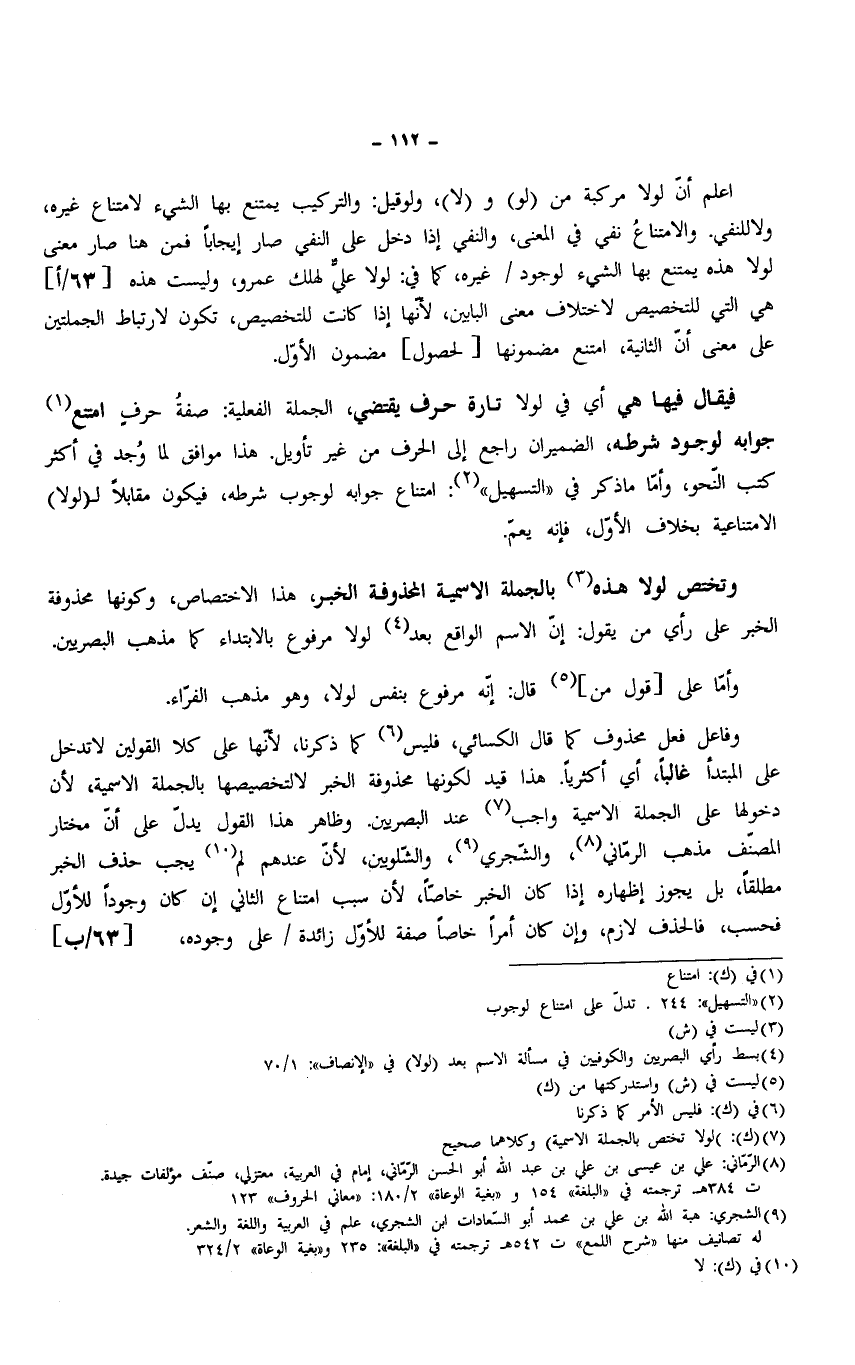 - ١١٢ -
اعلم أنّ لولا مركبة من (لو) و (لا)، ولوقيل: والتركيب يمتنع بها الشيء لامتناع غيره،
ولاللنفي. والامتناعُ نفي في المعنى، والنفي إذا دخل على النفي صار إيجاباً فمن هنا صار معنى
لولا هذه يمتنع بها الشيء لوجود / غيره، كما في: لولا عليٌّ لهلك عمرو، وليست هذه [٦٣/أ]
هي التي للتخصيص لاختلاف معنى البابين، لأنّها إذا كانت للتخصيص، تكون لارتباط الجملتين
على معنى أنّ الثانية، امتنع مضمونها [لحصول] مضمون الأوّل.
فيقـال فيهـا هي أي في لولا تـارة حـرف يقتضي، الجملة الفعلية: صفةُ حرفٍ امتنع(١)
جوابه لوجـود شرطـه، الضميران راجع إلى الحرف من غير تأويل. هذا موافق لما وُجد في أكثر
كتب النّحو، وأمّا ماذكر في «التسهيل»(٢): امتناع جوابه لوجوب شرطه، فيكون مقابلاً لـ(لولا)
الامتناعية بخلاف الأوّل، فإنه يعمّ.
وتختص لولا هـذه(٣) بالجملة الاسميـة المحذوفـة الخبـر، هذا الاختصاص، وكونها محذوفة
الخبر على رأي من يقول: إنّ الاسم الواقع بعد(٤) لولا مرفوع بالابتداء كما مذهب البصريين.
وأمّا على [قول من](٥) قال: إنّه مرفوع بنفس لولا، وهو مذهب الفرّاء.
وفاعل فعل محذوف كما قال الكسائي، فليس(٦) كما ذكرنا، لأنّها على كلا القولين لاتدخل
على المبتدأ غالباً، أي أكثرياً. هذا قيد لكونها محذوفة الخبر لالتخصيصها بالجملة الاسمية، لأن
دخولها على الجملة الاسمية واجب(٧) عند البصريين. وظاهر هذا القول يدلّ على أنّ مختار
المصنّف مذهب الرمّاني(٨)، والشّجري(٩)، والشّلوبين، لأنّ عندهم لم(١٠) يجب حذف الخبر
مطلقاً، بل يجوز إظهاره إذا كان الخبر خاصّاً، لأن سبب امتناع الثاني إن كان وجوداً للأوّل
فحسب، فالحذف لازم، وإن كان أمراً خاصاً صفة للأوّل زائدة / على وجوده، [٦٣/ب]
(١) في (ك): امتناع
(٢) «التسهيل»: ٢٤٤ . تدلّ على امتناع لوجوب
(٣) ليست في (ش)
(٤) بسط رأي البصريين والكوفيين في مسألة الاسم بعد (لولا) في «الإنصاف»: ٧٠/١
(٥) ليست في (ش) واستدركتها من (ك)
(٦) في (ك): فليس الأمر كما ذكرنا
(٧) (ك): )لولا تختص بالجملة الاسمية) وكلاهما صحيح
(٨) الرّمّاني: علي بن عيسى بن علي بن عبد الله أبو الحسن الرّمّاني، إمام في العربية، معتزلي، صنّف مؤلفات جيدة.
ت ٣٨٤هـ ترجمته في «البلغة» ١٥٤ و «بغية الوعاة» ١٨٠/٢: «معاني الحروف» ١٢٣
(٩) الشجري: هبة الله بن علي بن محمد أبو السّعادات ابن الشجري، علم في العربية واللغة والشعر.
له تصانيف منها «شرح اللمع» ت ٥٤٢هـ ترجمته في «البلغة»: ٢٣٥ و«بغية الوعاة» ٣٢٤/٢
(١٠) في (ك): لا